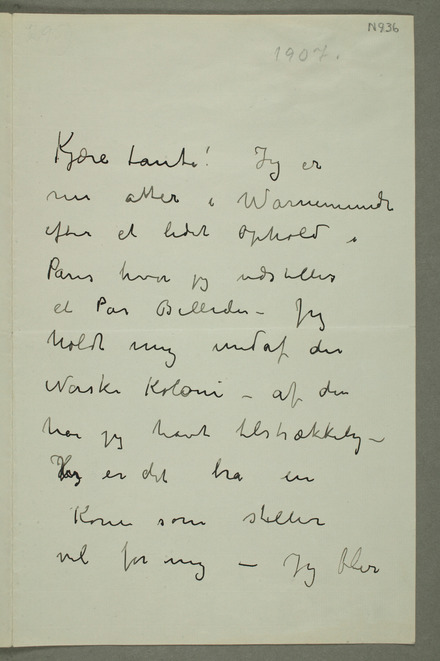 N 936
1907.
Kjære tante! Jeg er
nu atter i Warnemünde
efter et lidet Ophold i
Paris hvor jeg udstilles
et Par Billeder – Jeg
holdt mig undaf den
norske Koloni – af den
har jeg havt tilstrækkelig –
er det bra en
Kone som steller
vel for mig – Jeg blir